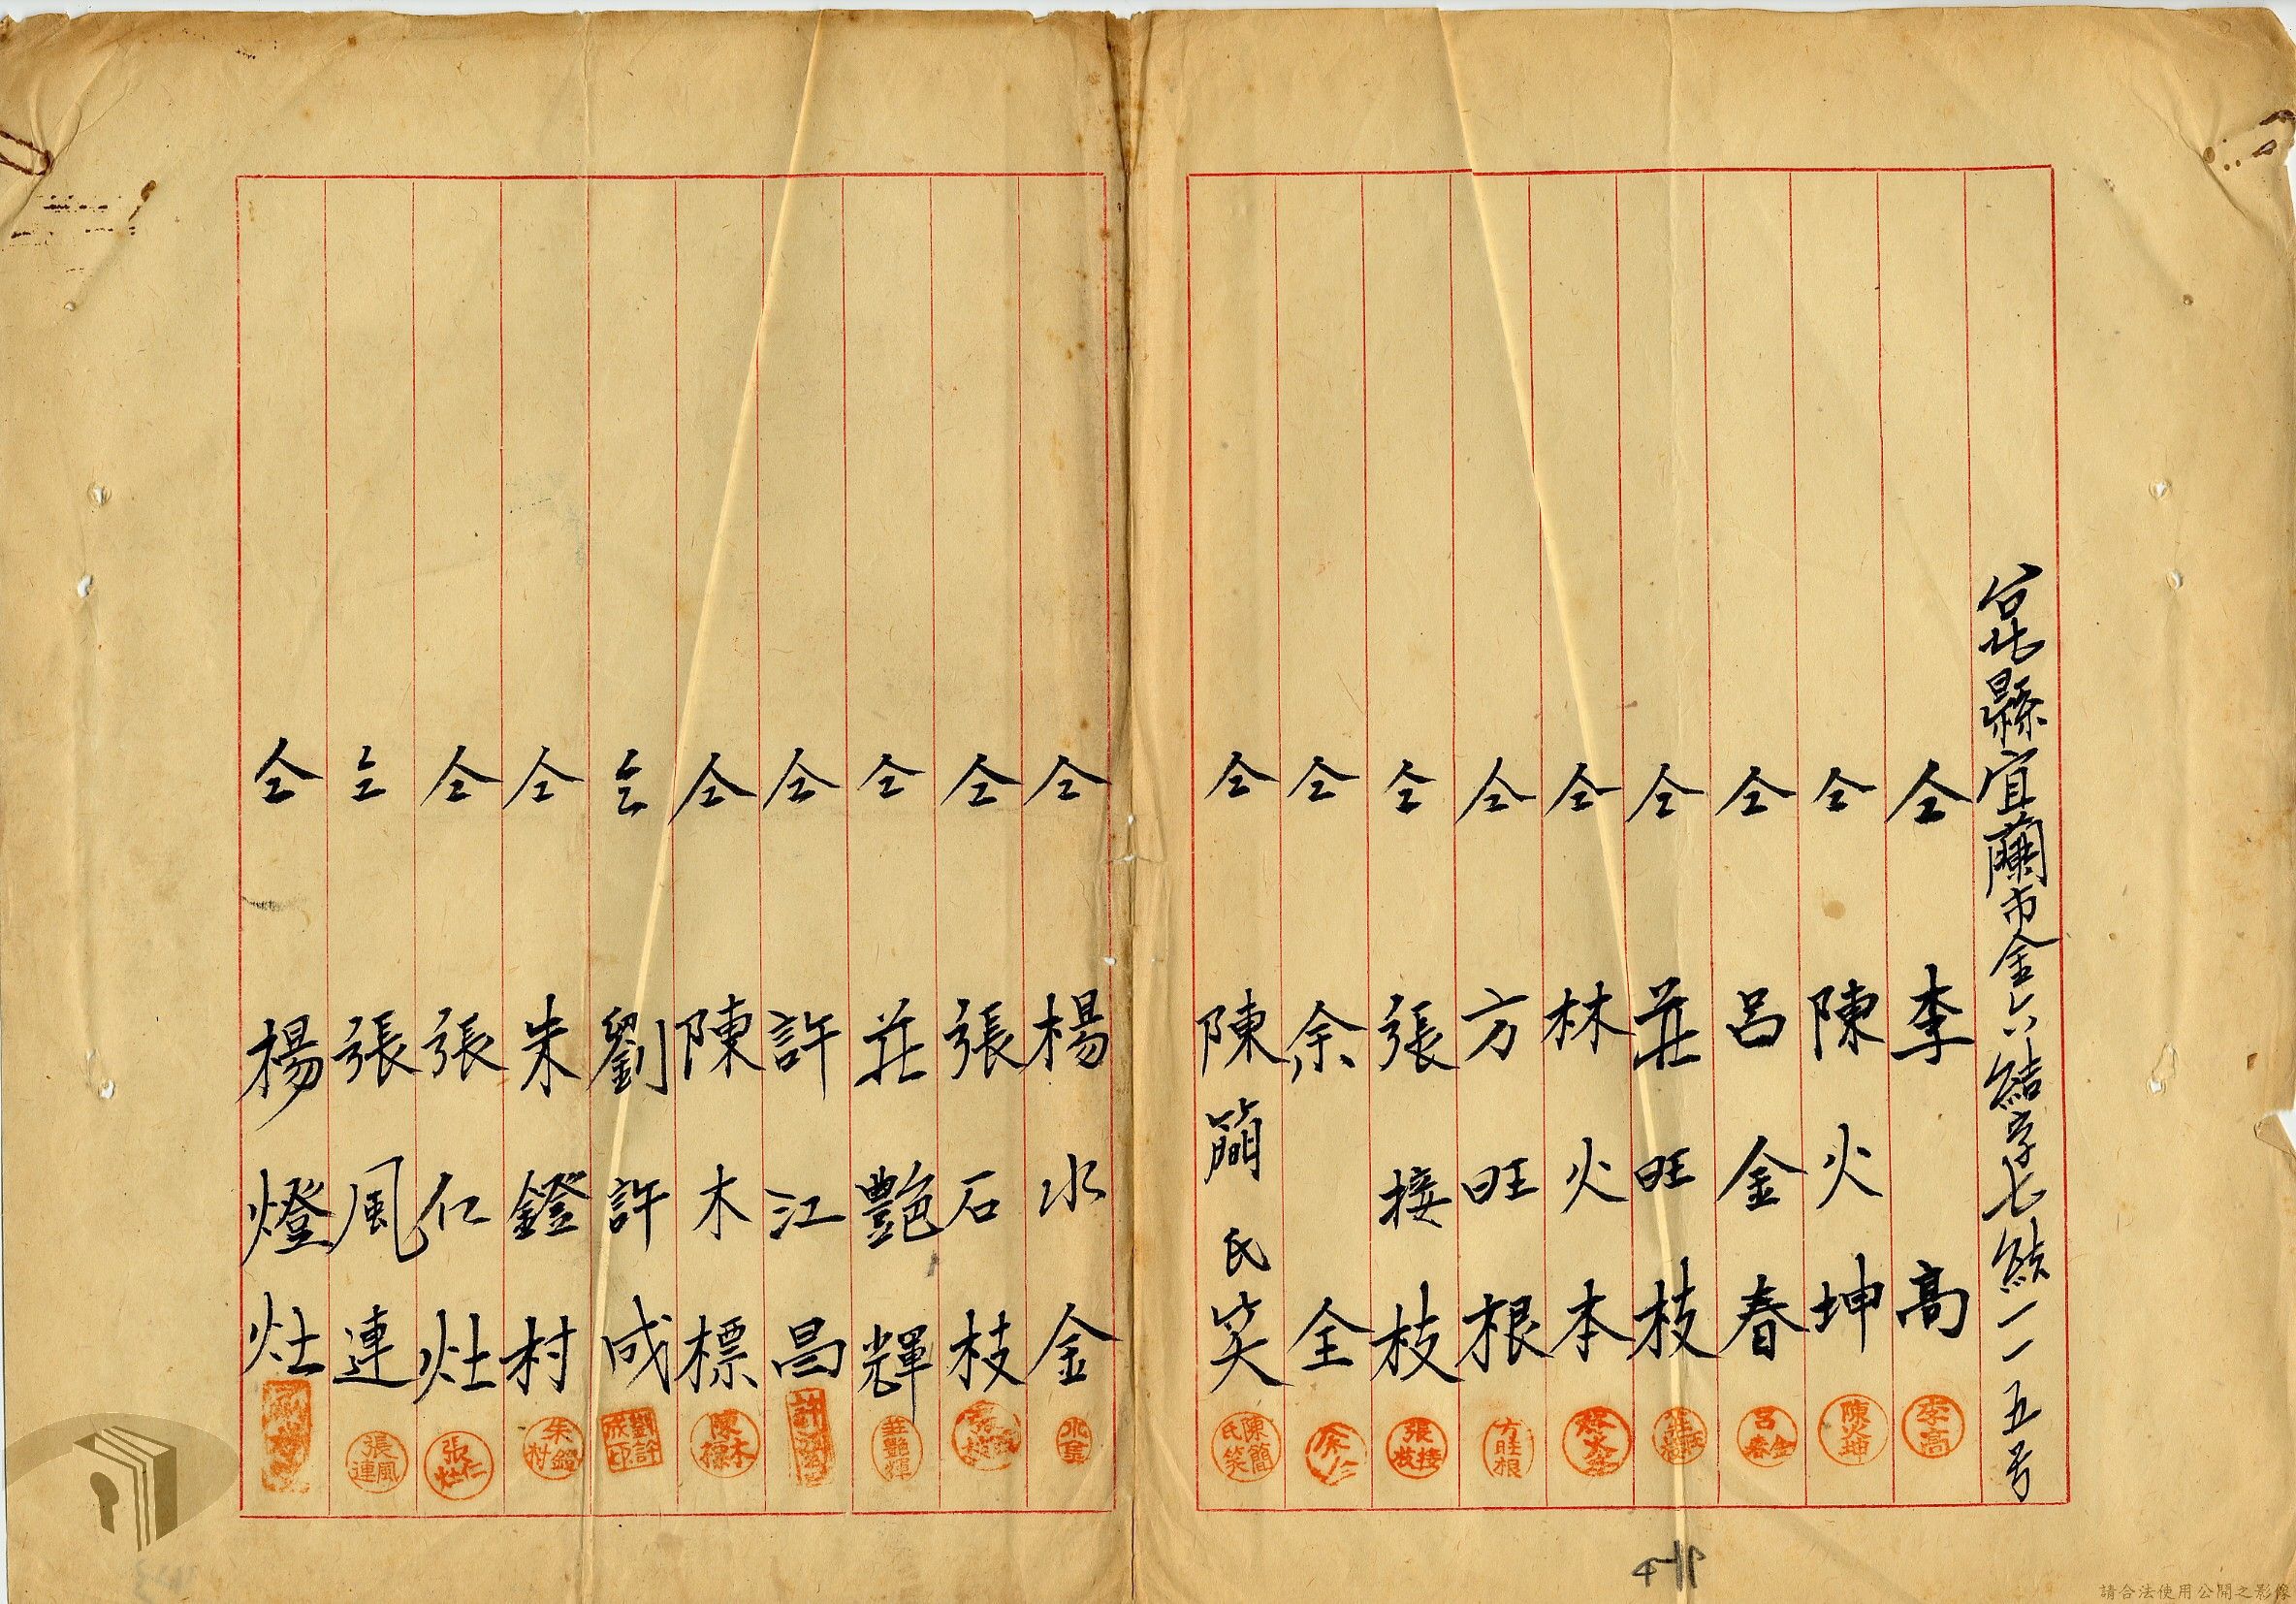 台北縣宜蘭市金六結字七結一一五号
仝 李高
仝 陳火坤
仝 呂金春
仝 莊旺枝
仝 林火本
仝 方旺根
仝 張接枝
仝 余全
仝 陳簡氏笑
仝 楊水金
仝 張石枝
仝 莊艷輝
仝 許江昌
仝 陳木標
仝 劉許成
仝 朱鐙村
仝 張仁灶
仝 張風連
仝 楊燈灶
李高
陳火坤
呂金春
方旺根
張接枝
陳簡氏笑
莊艷輝
陳木標
劉許成印
朱鐙村
張仁灶
張風連
請合法使用公開之影像